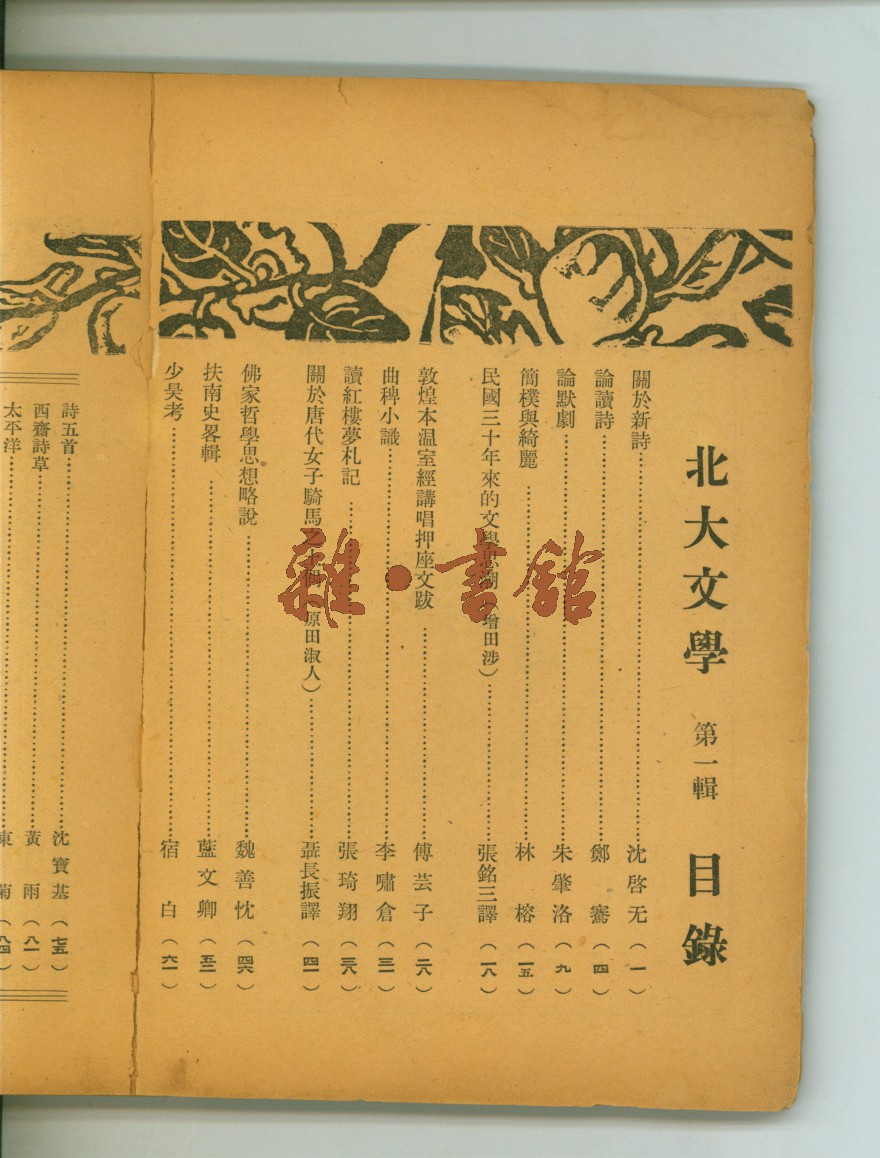 北大文學 第一輯 目錄
關於新詩……沈啓无(一)
論讀詩……鄭騫(四)
論默劇……朱肇洛(九)
簡樸與綺麗……林榕(一五)
民國三十年來的文學思潮(增田涉)……張銘三譯(一八)
敦煌本温室經講唱押座文跋……傅芸子(二八)
曲稗小識……李嘯倉(三一)
讀紅樓夢札記……張琦翔(三八)
關於唐代女子騎馬之(原田淑人)……聶長振譯(四一)
佛家哲學思想略說……魏善忱(四六)
扶南史畧輯……藍文卿(五二)
少昊考……宿白(六一)
詩五首……沈寶基(七五)
西齋詩草……黃雨(八一)
太平洋……東菊(八四)
雜·書舘